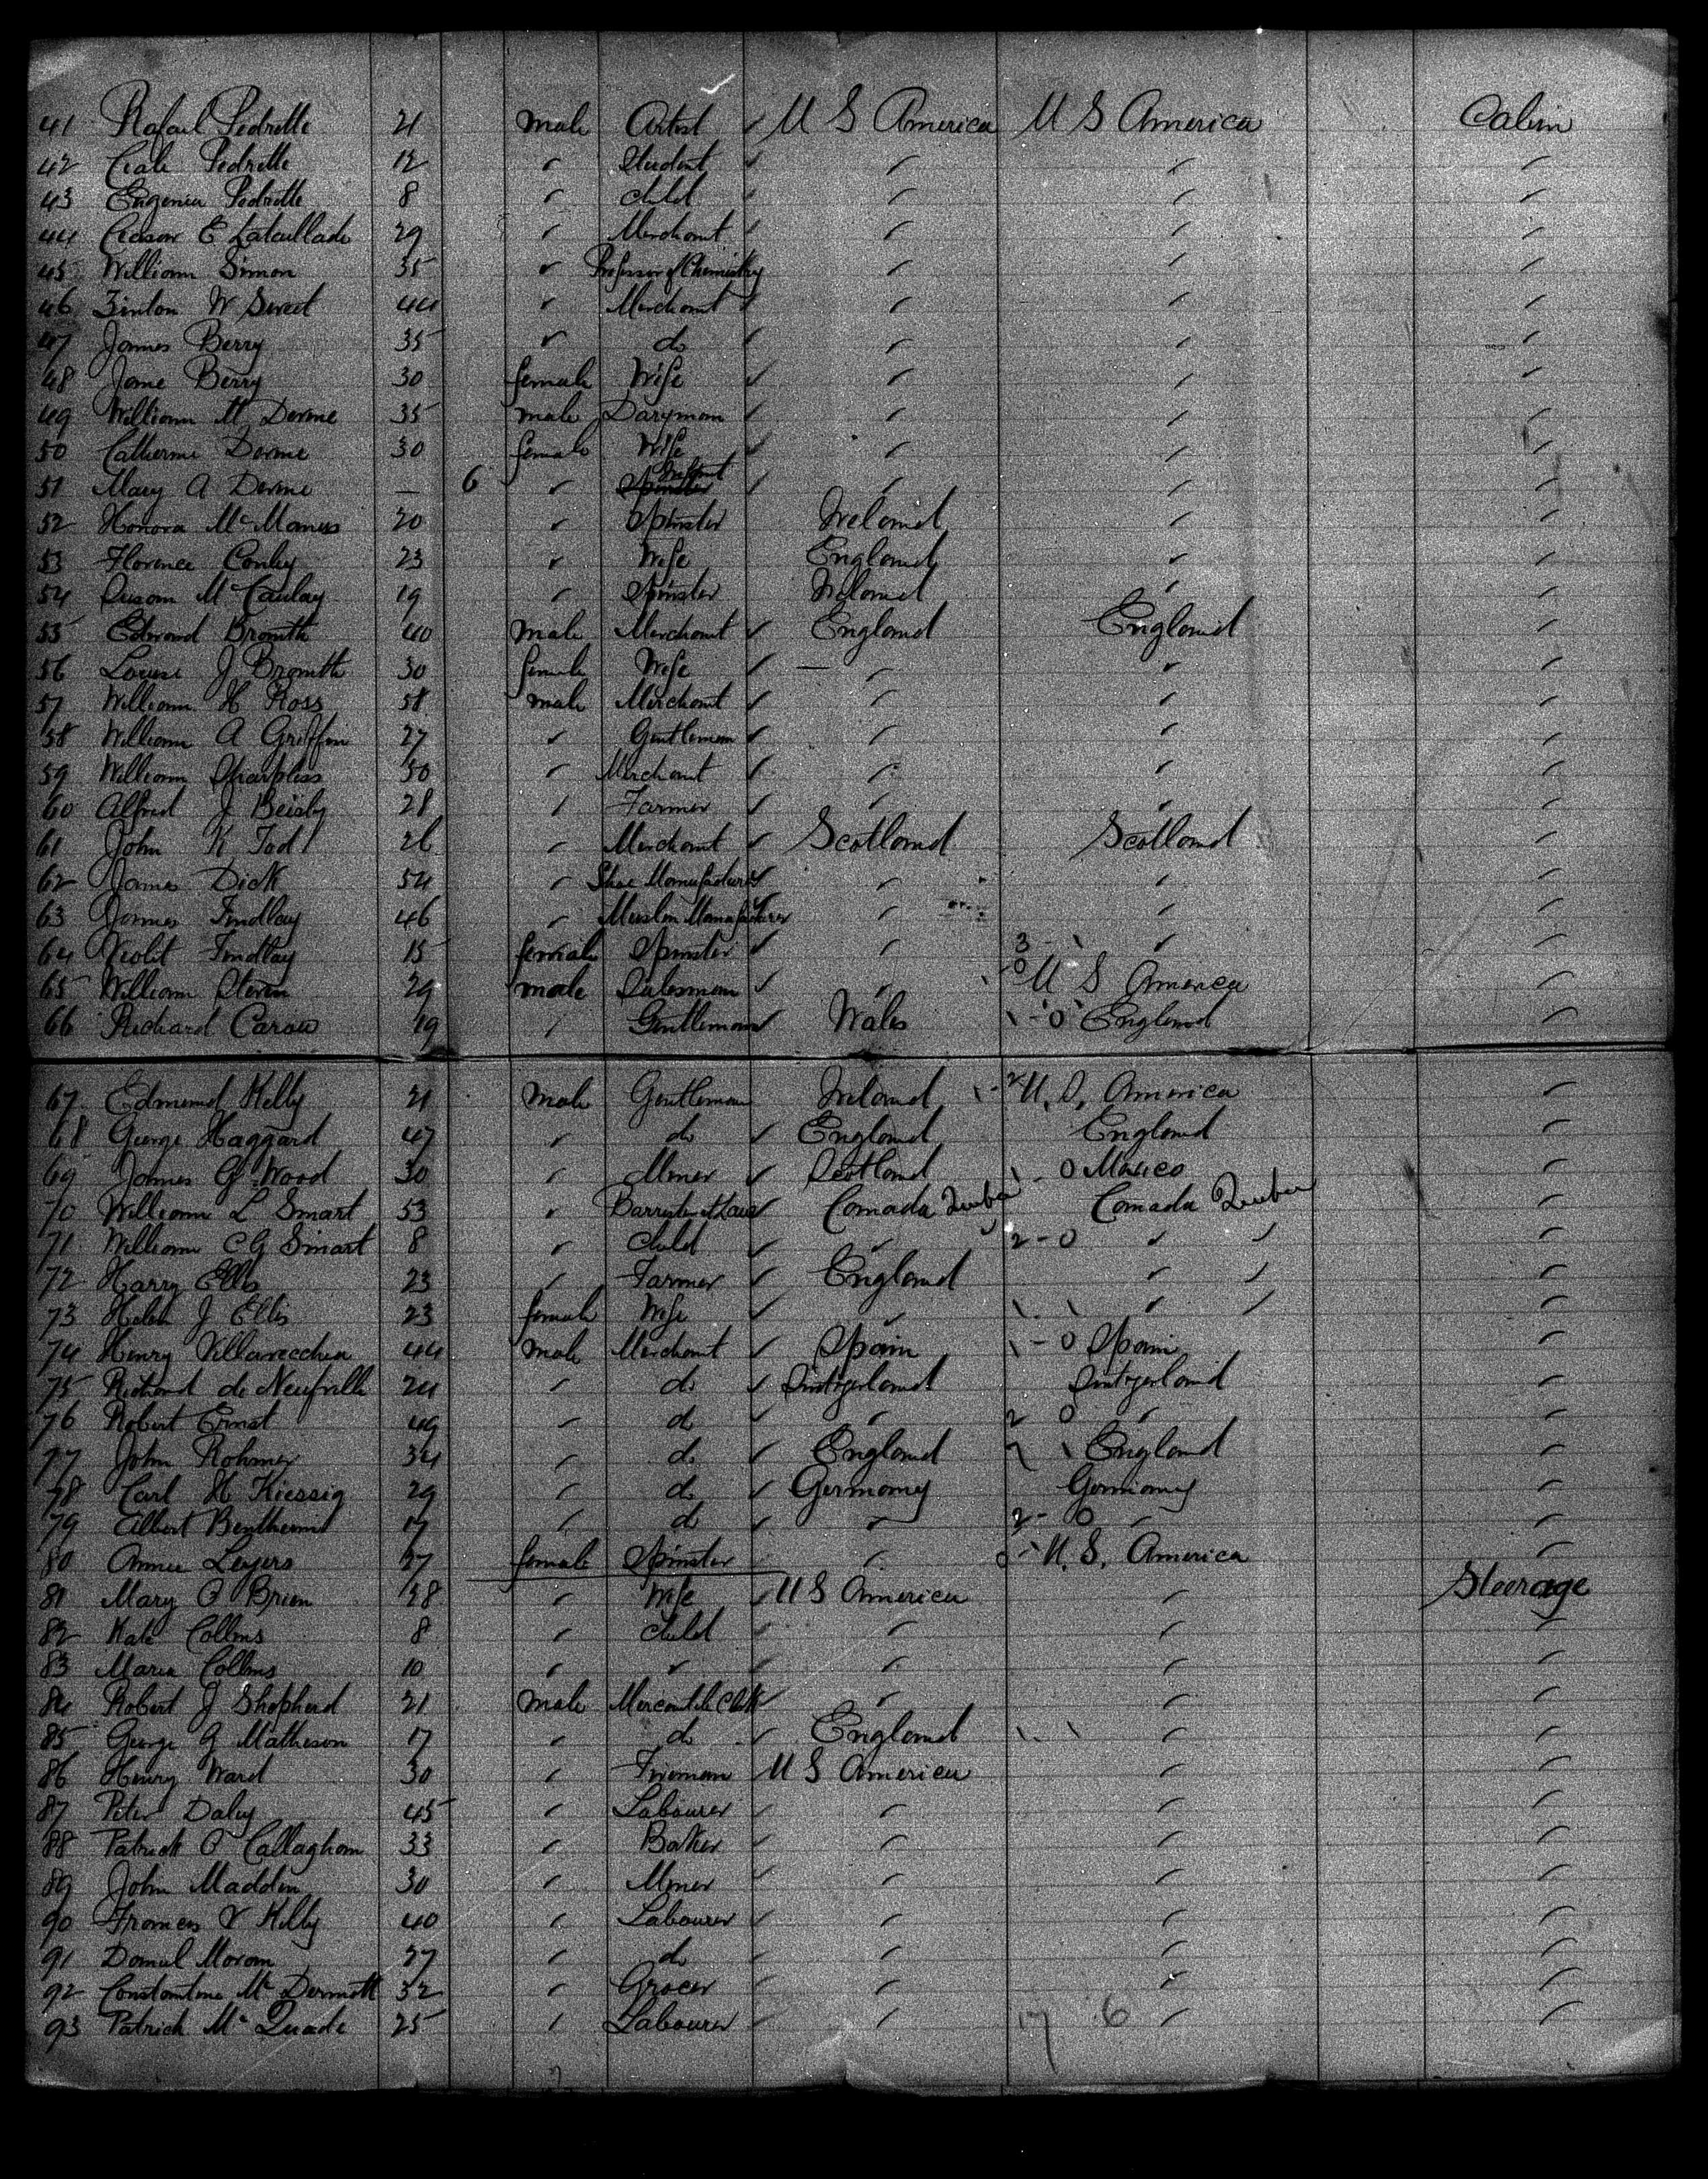 41 Rafael Pedrette 21 male Artist U S America U S America Cabin
42 Pedrette 12 " Student " " "
43 Eugenia Pedrette 8 " child " " "
44 E Lataillade 29 " Merchant " " "
45 William Simon 35 " Professor of Chemistry " " "
46 W Sweet 44 " Merchant " " "
47 James Berry 35 " do " " "
48 Jane Berry 30 female Wife " " "
49 William H Dorme 35 male Daryman " " "
50 Catherine Dorme 30 female Wife " " "
51 Mary A Dorme — 6 " Infant " " "
52 Honora McManus 20 " Spinster Ireland " "
53 Florence Conley 23 " Wife England " "
54 Susan McCaulay 19 " Spinster Ireland " "
55 Edward Bromith 40 male Merchant England England "
56 Louise J Bromith 30 female Wife " " "
57 William H Ross 58 male Merchant " " "
58 William A Griffin 27 " Gentleman " " "
59 William Sharpless 50 " Merchant " " "
60 Alfred J Beisly 28 " Farmer " " "
61 John K Tod 26 " Merchant Scotland Scotland "
62 James Dick 54 " Shoe Manufacturer " " "
63 James Findlay 46 " Muslin Manufacturer " " "
64 Violet Findlay 15 female Spinster " 3 - 1 " "
65 William Steven 29 male Salesman " 0 U S America "
66 Richard Carow 19 " Gentleman Wales 1 - 0 England "
67 Edmund Kelly 21 male Gentleman Ireland 1 - 2 U. S. America "
68 George Haggard 47 " do England England "
69 James G Wood 30 " Miner Scotland 1 - 0 Mexico "
70 William L Smart 53 " Barrister at Law Canada Quebec Canada Quebec "
71 William C G Smart 8 " child " 2 - 0 " " "
72 Harry Ellis 23 " Farmer England " " "
73 Helen J Ellis 23 female Wife " 1 1 " " "
74 Henry Villavecchia 44 male Merchant Spain 1 - 0 Spain "
75 Richard de Neufville 24 " do Switzerland Switzerland "
76 Robert Ernst 49 " do " 2 0 " "
77 John Rohmer 34 " do England 1 England "
78 Carl H Kiessig 29 " do Germany Germany "
79 Albert Bentheim 17 " do " 2 - 0 " "
80 Annie Leyers 27 female Spinster " 0 - 1 U. S. America "
81 Mary O Brien 38 " Wife U S America " Steerage
82 Kate Collins 8 " child " " "
83 Maria Collins 10 " " " " "
84 Robert J Shepherd 21 male Mercantile Clerk " " "
85 George G Matheson 17 " do England 1 1 " "
86 Henry Ward 30 " U S America " "
87 Peter Daley 45 " Labourer " " "
88 Patrick O Callaghan 33 " Baker " " "
89 John Madden 30 " Miner " " "
90 Francis Kelly 40 " Labourer " " "
91 Daniel Moran 27 " do " " "
92 Constantine McDermott 32 " Grocer " " "
93 Patrick McQuade 25 " Labourer " 17 6 " "